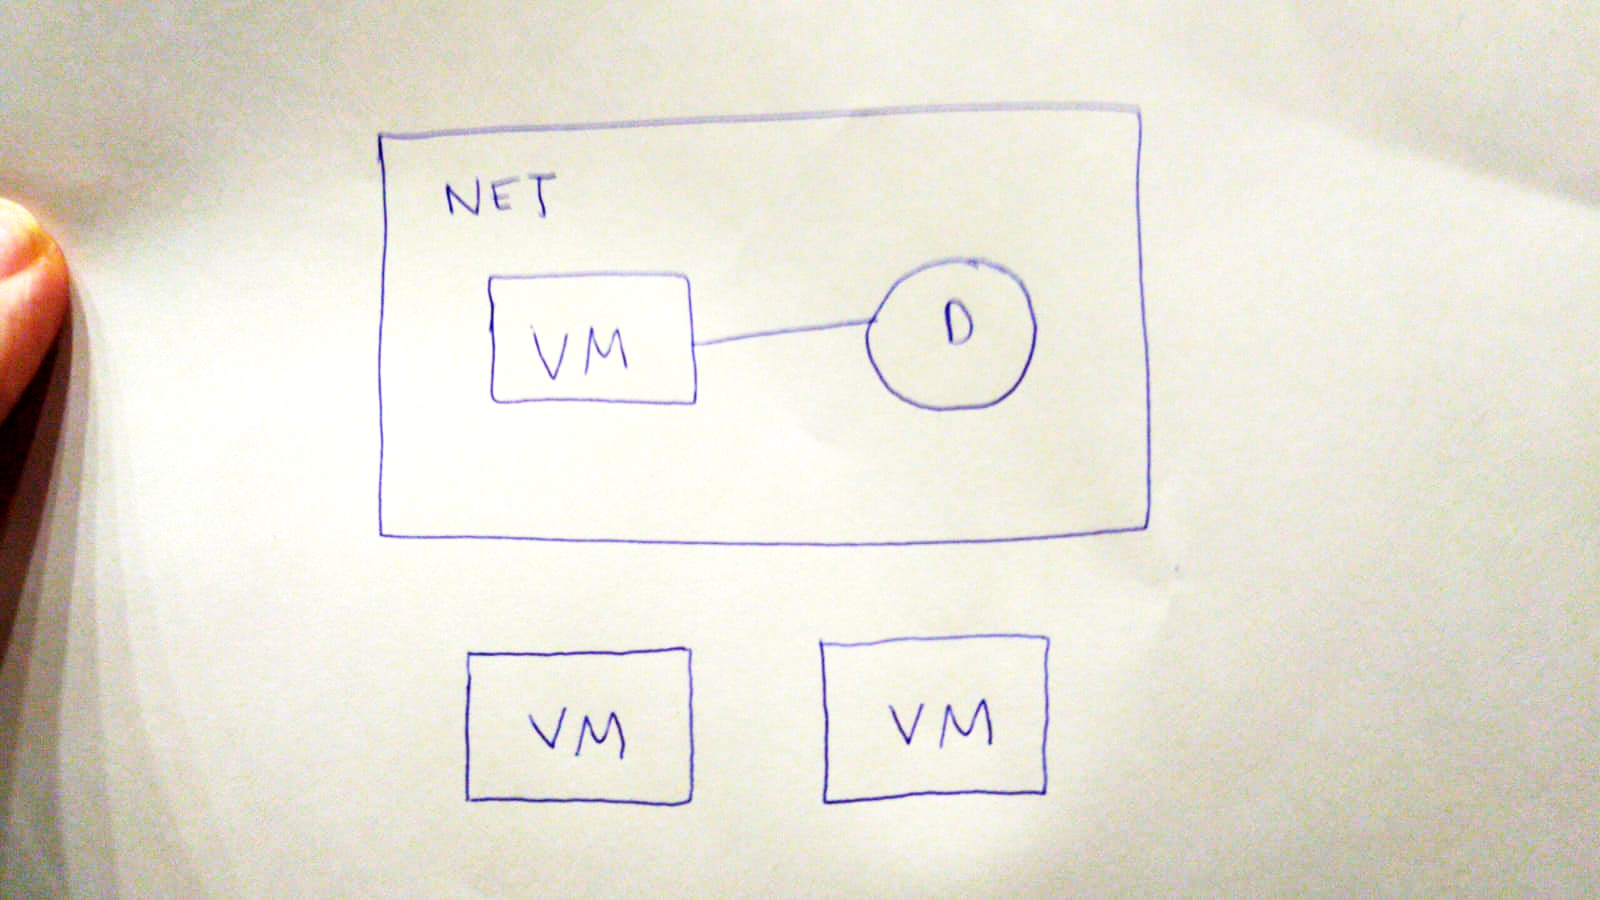 NET
VM D
VM VM